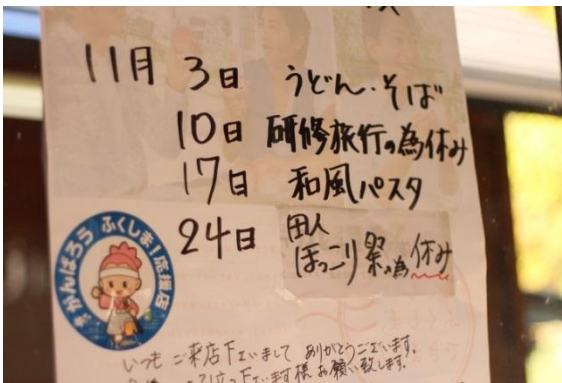 11月 3日 うどん・そば
10日 研修旅行の為休み
17日 和風パスタ
24日 田人
ほっこり祭の為休み
がんばろう ふくしま!応援店
いつも ご来店下さいまして ありがとうございます。
お願い致します!